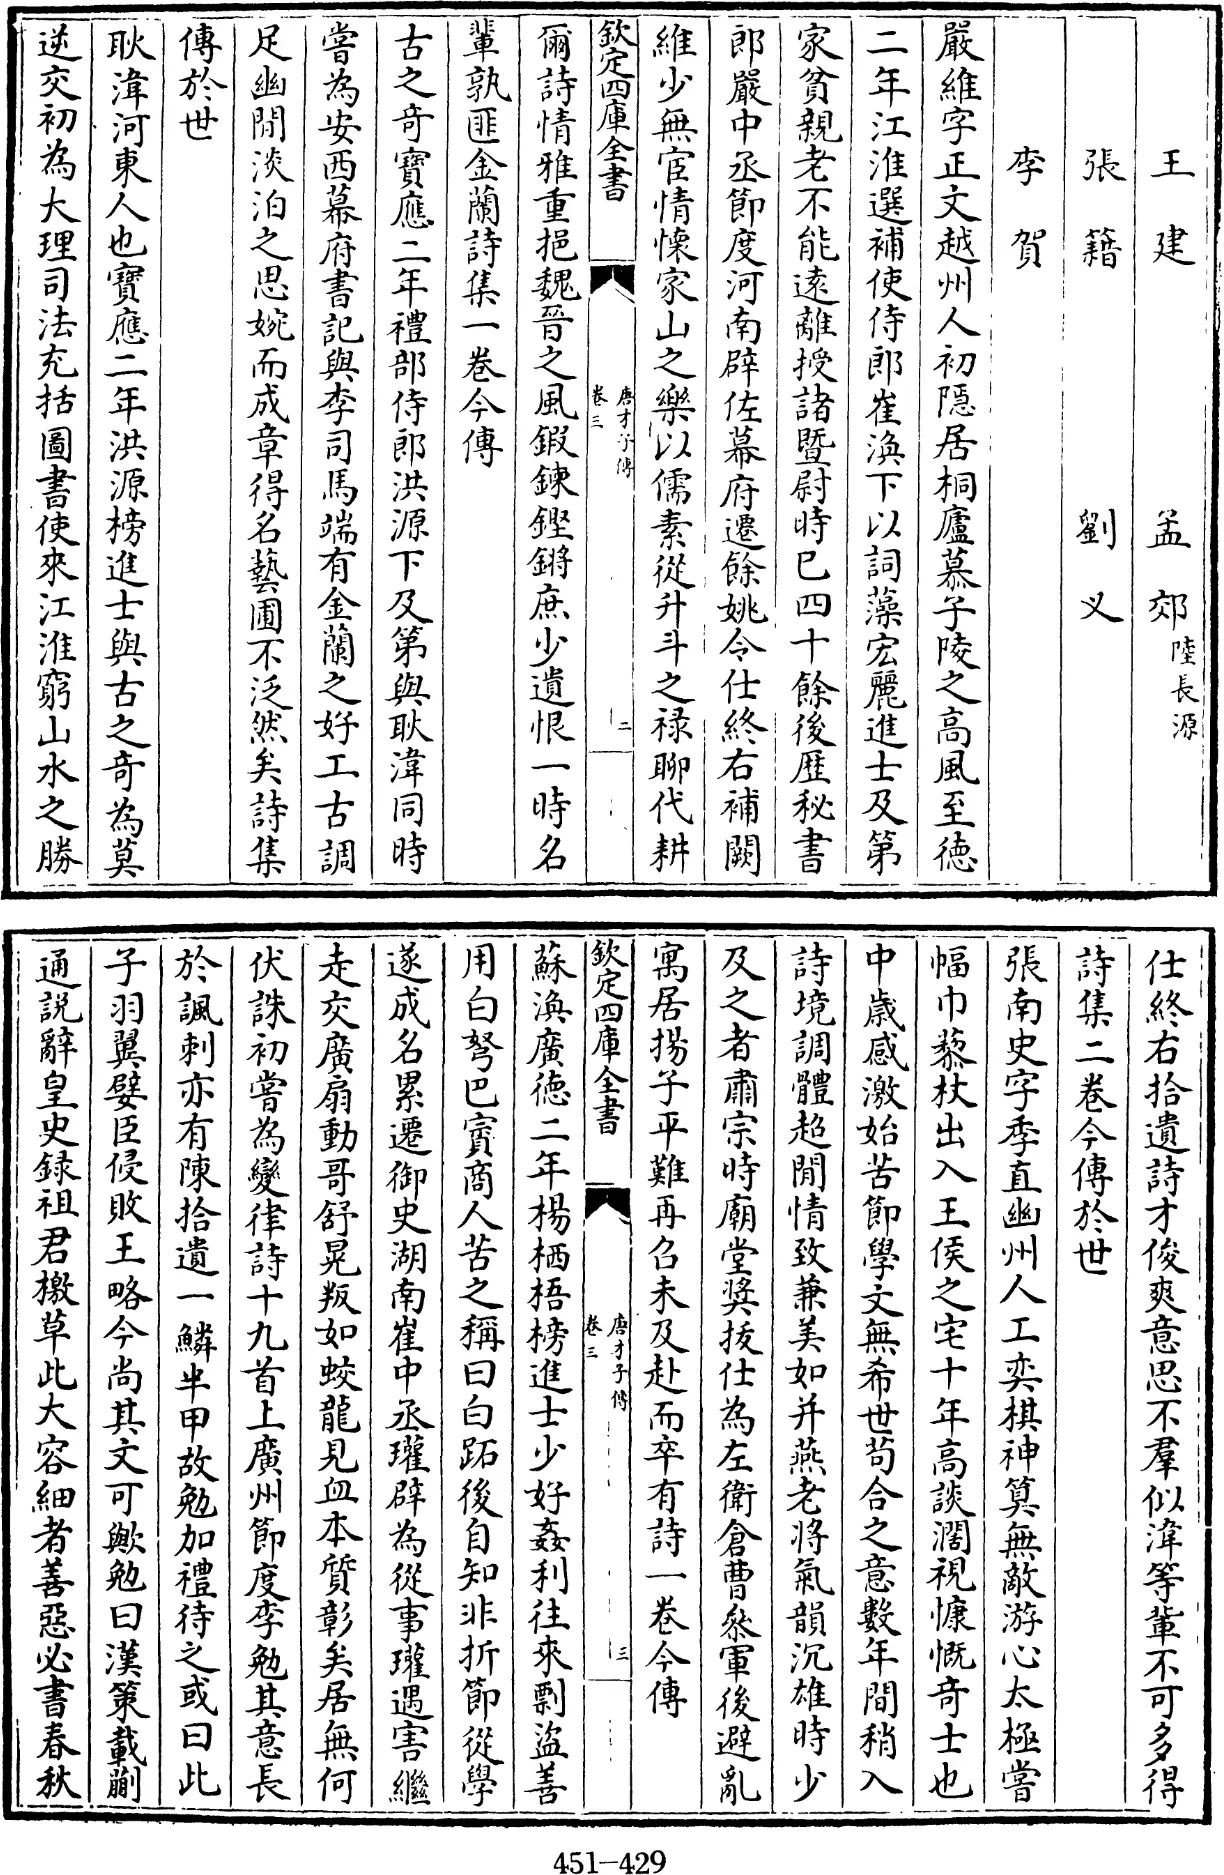 王建 孟郊 陸長源
張籍 劉义
李賀
嚴維字正文越州人初隱居桐廬慕子陵之高風至徳
二年江淮選補使侍郎崔渙下以詞藻宏麗進士及第
家貧親老不能遠離授諸暨尉時已四十餘後歴秘書
郎嚴中丞節度河南辟佐幕府遷餘姚令仕終右補闕
維少無宦情懐家山之樂以儒素從升斗之禄聊代耕
欽定四庫全書 唐才子傳 卷三 二
爾詩情雅重挹魏晉之風鍜鍊鏗鏘庶少遺恨一時名
輩孰匪金蘭詩集一卷今傳
古之竒寶應二年禮部侍郎洪源下及第與耿湋同時
嘗為安西幕府書記與李司馬端有金蘭之好工古調
足幽閒淡泊之思婉而成章得名藝圃不泛然矣詩集
傳於世
耿湋河東人也寶應二年洪源榜進士與古之竒為莫
逆交初為大理司法充括圖書使來江淮窮山水之勝
仕終右拾遺詩才俊爽意思不羣似湋等輩不可多得
詩集二卷今傳於世
張南史字季直幽州人工奕棋神算無敵游心太極嘗
幅巾藜杖出入王侯之宅十年高談濶視慷慨竒士也
中歳感激始苦節學文無希世茍合之意數年間稍入
詩境調體超閒情致兼美如并燕老將氣韻沉雄時少
及之者肅宗時廟堂奨拔仕為左衛倉曹叅軍後避亂
寓居揚子平難再召未及赴而卒有詩一卷今傳
欽定四庫全書 唐才子傳 卷三 三
蘇渙廣徳二年楊栖梧榜進士少好姦利往來剽盗善
用白弩巴賓商人苦之稱曰白跖後自知非折節從學
遂成名累遷御史湖南崔中丞瓘辟為從事瓘遇害繼
走交廣扇動哥舒晃叛如蛟龍見血本質彰矣居無何
伏誅初嘗為變律詩十九首上廣州節度李勉其意長
於諷刺亦有陳拾遺一鱗半甲故勉加禮待之或曰此
子羽翼嬖臣侵敗王略今尚其文可歟勉曰漢策載蒯
通説辭皇史録祖君檄草此大容細者善惡必書春秋
451—429